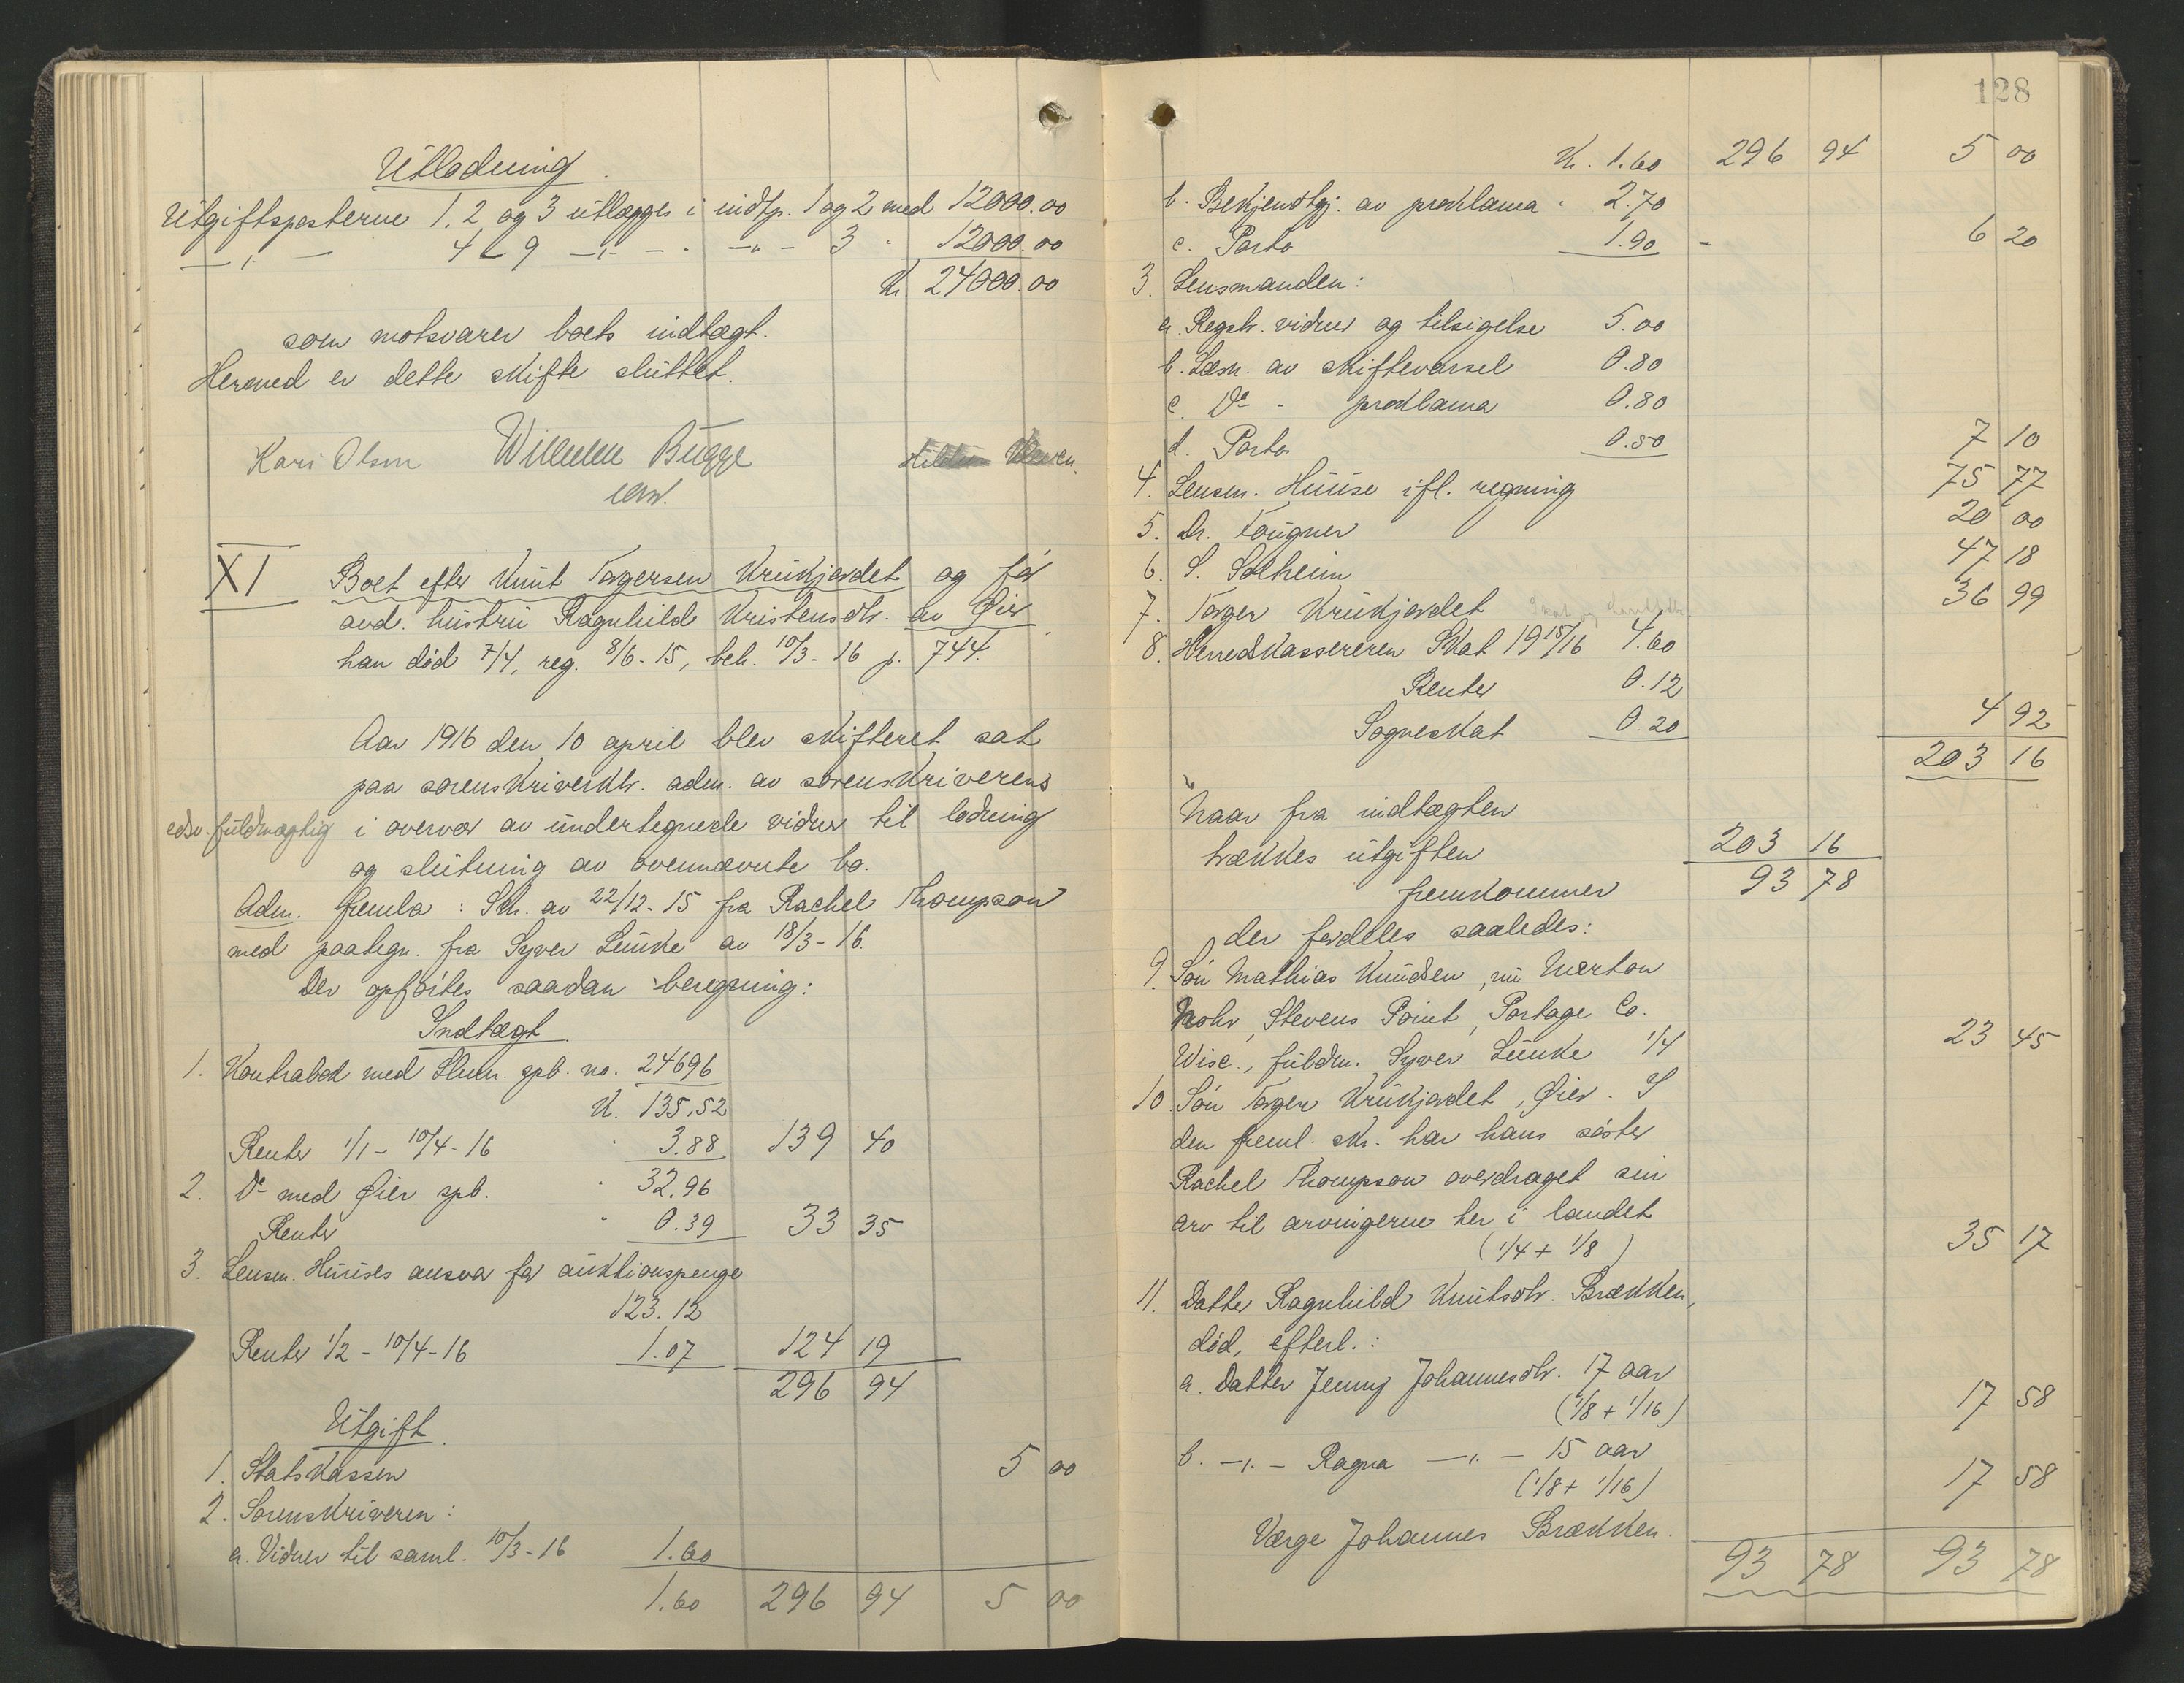 Utlodning.
Utgiftsposterne 1, 2 og 3 utlægges i indtp. 1 og 2 med 12000.00
—„— 4 - 9 —„— - —„— 3 " 12000.00
Kr. 24000.00
som motsvarer boets indtægt.
Hermed er dette skifte sluttet.
Kari Olsen Wilhelm Bugge
const.
XI Boet efter Knut Torgersen Krukjordet og før
avd. hustru Ragnhild Kristensdtr. av Øier,
han död 7/4, reg. 8/6-15, beh. 10/3-16 p. 744.
Aar 1916 den 10 april blev skifteret sat
paa sorenskriverktr. adm. av sorenskriverens
edsv. fuldmægtig i overvær av undertegnede vidner til lodning
og slutning av ovennævnte bo.
Adm. fremla: Skr. av 22/12-15 fra Rachel Thompson
med paategn. fra Syver Lunke av 18/3-16.
Der opförtes saadan beregning:
Indtægt
1. Kontrabok med Lhmr. spb. no. 24696
K. 135.52
Renter 1/1 - 10/4-16 " 3.88 139 40
2. Do med Øier spb. " 32.96
Renter " 0.39 33 35
3. Lensm. Huuses ansvar for auktionspenge
123.12
Renter 1/2 - 10/4-16 1.07 124 19
296 94
Utgift.
1. Statskassen 5 00
2. Sorenskriveren:
a. Vidner til saml. 10/3-16 1.60
1.60 296 94 5 00
128
Kr. 1.60 296 94 5 00
b. Bekjendtgj. av proklama " 2.70
c. Porto 1.90 - 6 20
3. Lensmanden:
a. Regstr. vidner og tilsigelse 5.00
b. Læsn. av skiftevarsel 0.80
c. Do - proklama 0.80
d. Porto 0.50 7 10
4. Lensm. Huuse ifl. regning 75 77
5. Dr. Fougner 20 00
6. S. Solheim 47 18
7. Torger Krukjordet 36 99
8. Herredskassereren Skat 1915/16 4.60
Renter 0.12
Sogneskat 0.20 4 92
203 16
Naar fra indtægten
trækkes utgiften 203 16
fremkommer 93 78
der fordeles saaledes:
9. Sön Mathias Knudsen, nu Merton
Mohr, Stevens Point, Portage Co.
Wisc., fuldm. Syver Lunke 1/4 23 45
10. Sön Torger Krukjordet, Øier. I
den freml. skr. har hans söster
Rachel Thompson overdraget sin
arv til arvingerne her i landet
(1/4 + 1/8) 35 17
11. Datter Ragnhild Knutsdtr. Brækken,
död, efterl.:
a. Datter Jenny Johannesdtr. 17 aar
(1/8 + 1/16) 17 58
b. —„— Ragna —„— 15 aar
(1/8 + 1/16) 17 58
Værge Johannes Brækken.
93 78 93 78